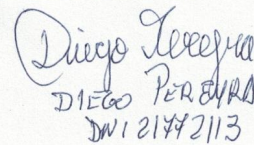 Diego Pereyra
DIEGO PEREYRA
DNI 21772113